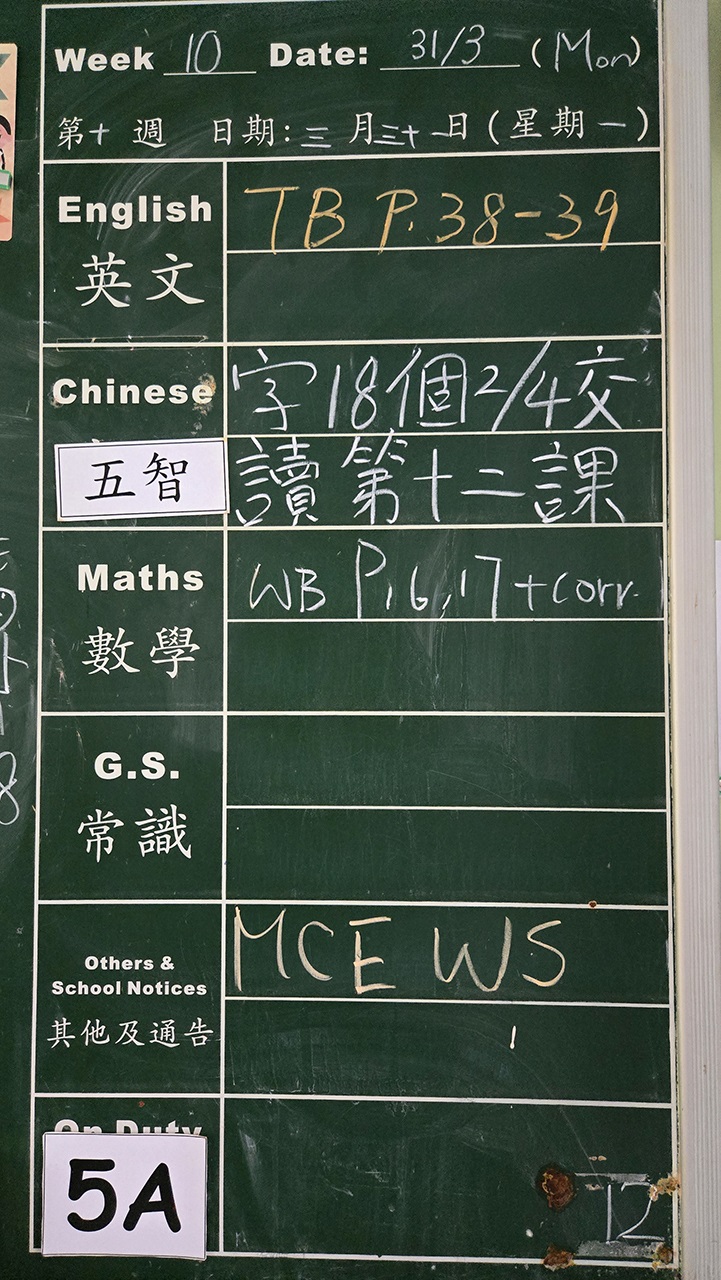 Week 10 Date: 31/3 (Mon)
第十週 日期:三月三十一日(星期一)
English
TB P.38-39
英文
Chinese
字18個2/4交
五智
讀第十二課
Maths
WB P.16,17+corr.
數學
G.S.
常識
Others &
School Notices
MCE WS
其他及通告
On Duty
5A
12